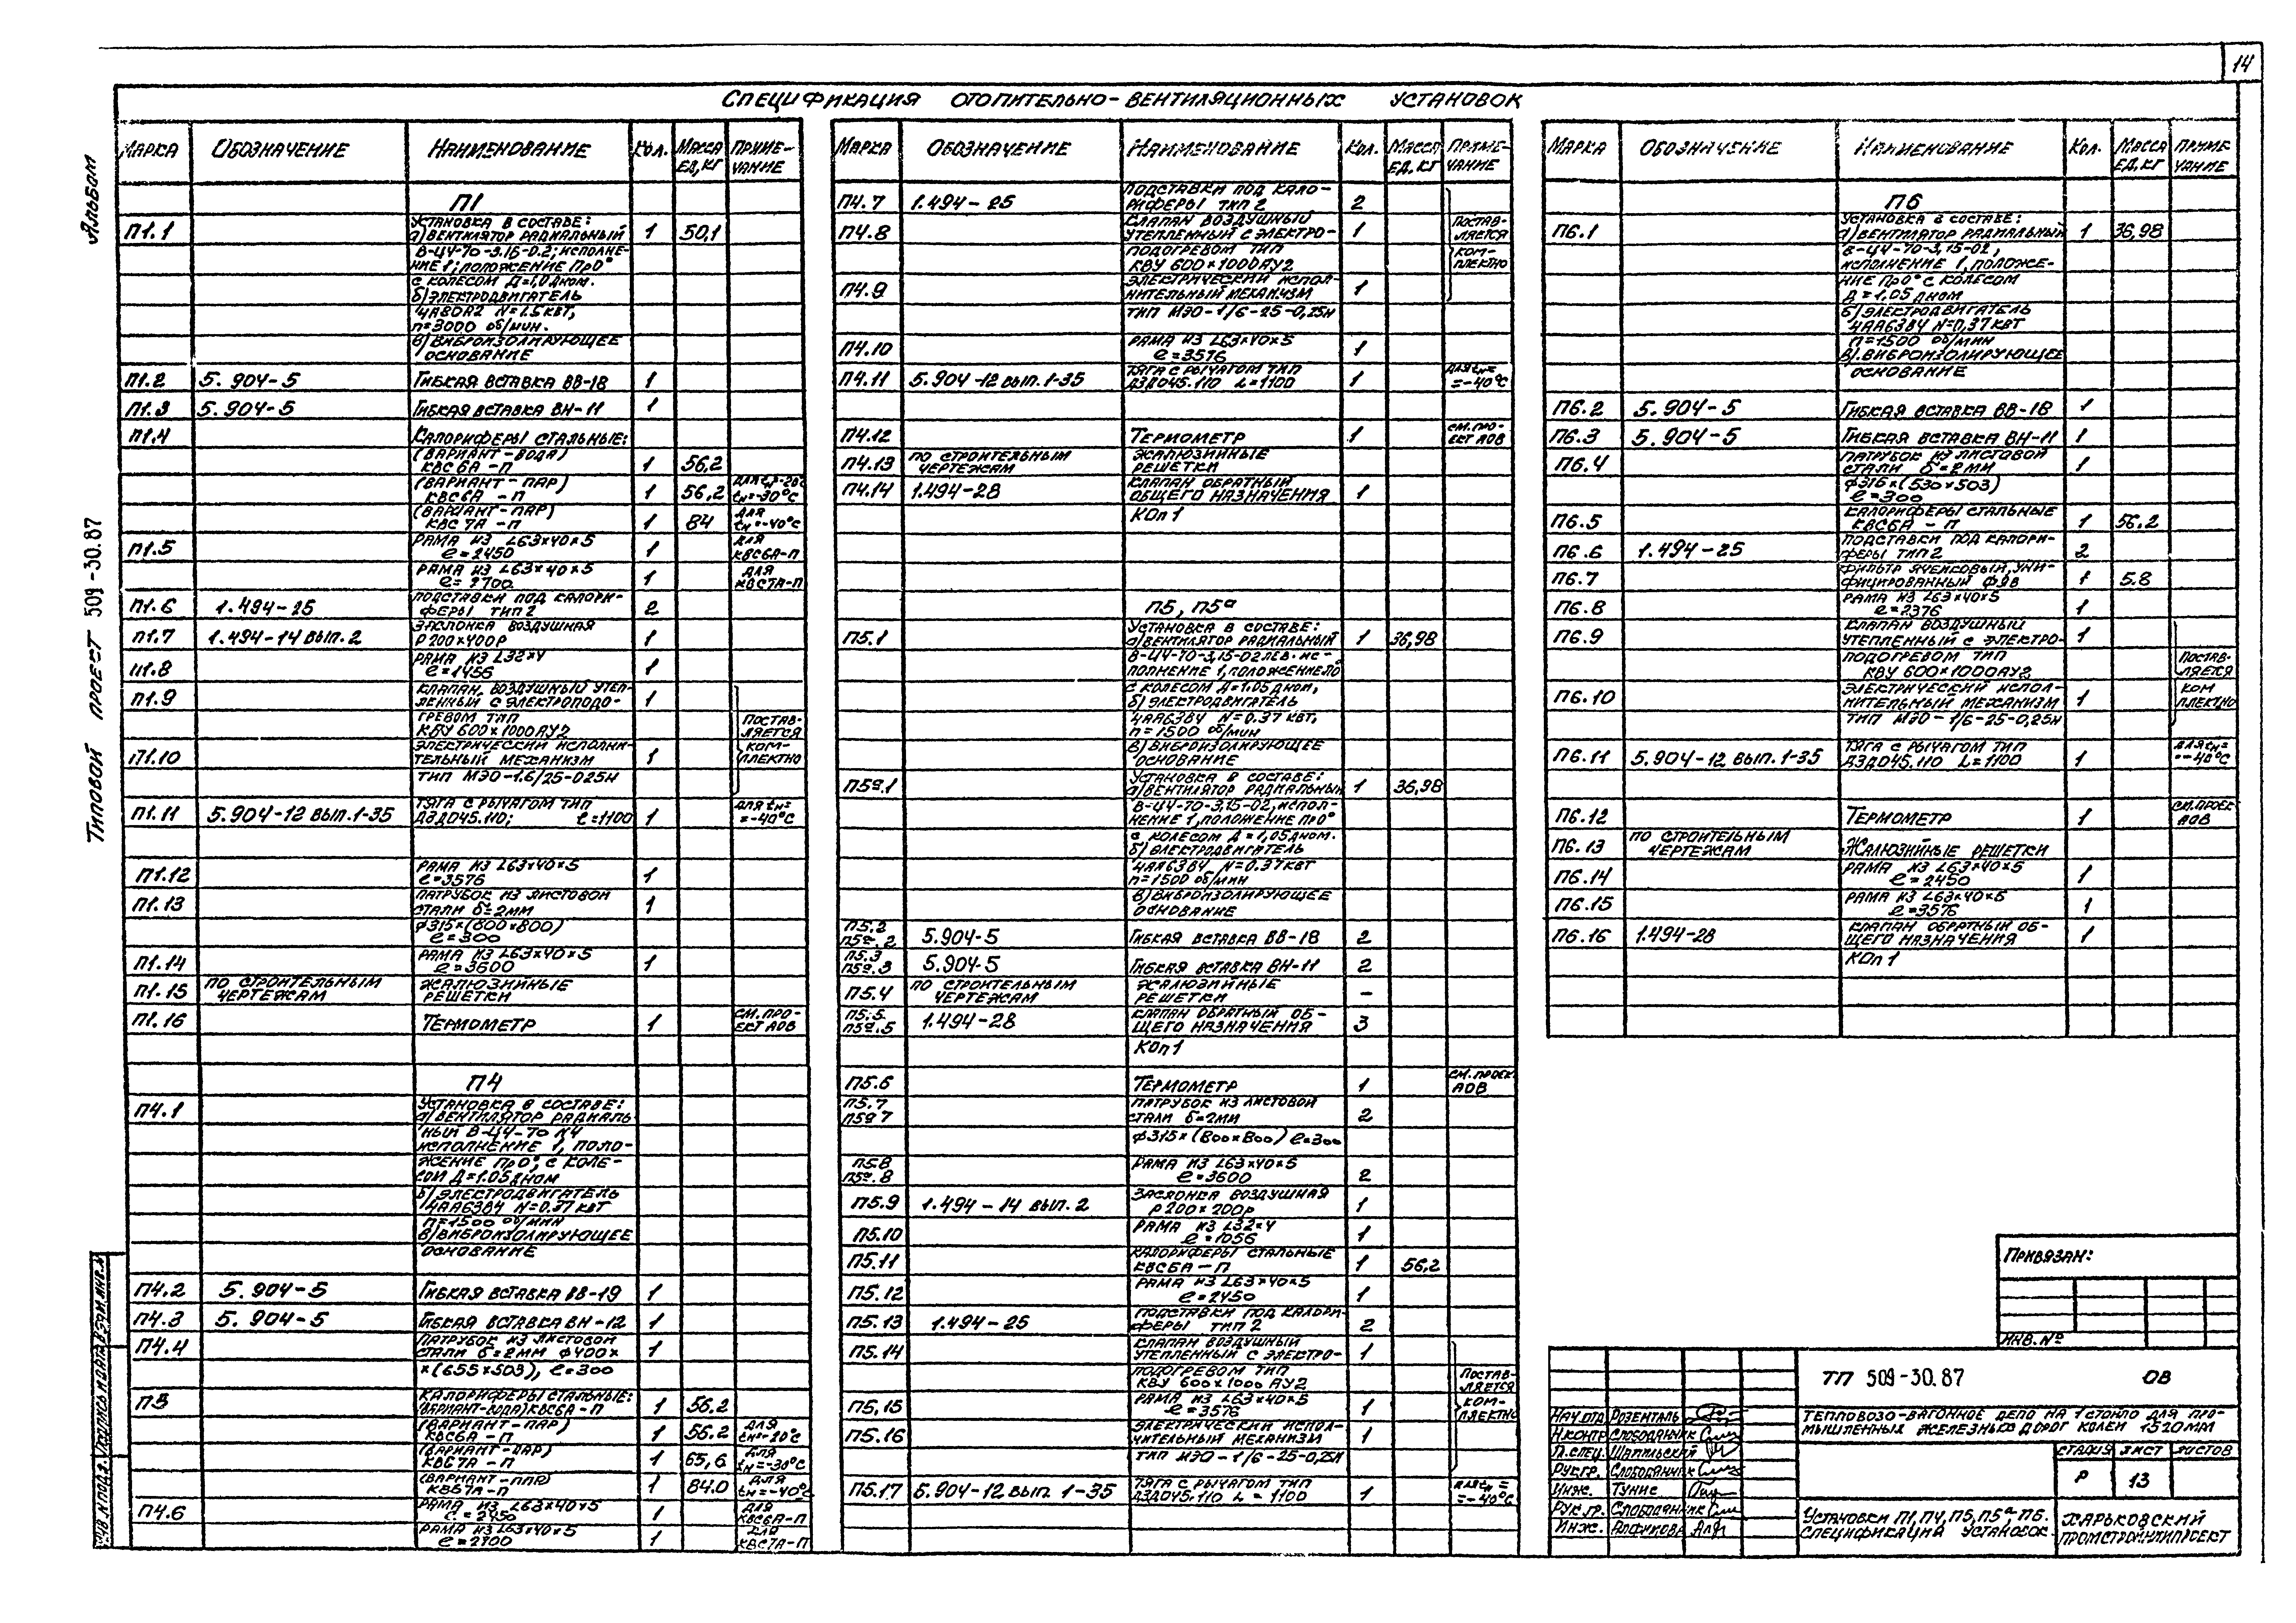 14
СПЕЦИФИКАЦИЯ ОТОПИТЕЛЬНО-ВЕНТИЛЯЦИОННЫХ УСТАНОВОК
АЛЬБОМ
ТИПОВОЙ ПРОЕКТ 509-30.87
МАРКА ОБОЗНАЧЕНИЕ НАИМЕНОВАНИЕ КОЛ. МАССА ЕД,КГ ПРИМЕ-ЧАНИЕ
П1
П1.1 УСТАНОВКА В СОСТАВЕ:
а) ВЕНТИЛЯТОР РАДИАЛЬНЫЙ 1 50,1
В-Ц4-70-3.15-0.2; ИСПОЛНЕ-
НИЕ 1; ПОЛОЖЕНИЕ ПР0°
С КОЛЕСОМ Д=1,0 ДНОМ.
б) ЭЛЕКТРОДВИГАТЕЛЬ
4А80А2 N=1.5 КВТ,
n=3000 ОБ/МИН.
в) ВИБРОИЗОЛИРУЮЩЕЕ
ОСНОВАНИЕ
П1.2 5.904-5 ГИБКАЯ ВСТАВКА ВВ-18 1
П1.3 5.904-5 ГИБКАЯ ВСТАВКА ВН-11 1
П1.4 КАЛОРИФЕРЫ СТАЛЬНЫЕ:
(ВАРИАНТ-ВОДА)
КВС6А-П 1 56,2
(ВАРИАНТ-ПАР) ДЛЯ tн=-20°С
КВС6А-П 1 56,2 tн=-30°С
(ВАРИАНТ-ПАР) ДЛЯ
КВС7А-П 1 84 tн=-40°С
П1.5 РАМА ИЗ L63×40×5 ДЛЯ
ℓ=2450 1 КВС6А-П
РАМА ИЗ L63×40×5 ДЛЯ
ℓ=2700 1 КВС7А-П
П1.6 1.494-25 ПОДСТАВКИ ПОД КАЛОРИ-
ФЕРЫ ТИП 2 2
П1.7 1.494-14 ВЫП. 2 ЗАСЛОНКА ВОЗДУШНАЯ
Р200×400Р 1
П1.8 РАМА ИЗ L32×4
ℓ=1456 1
П1.9 КЛАПАН ВОЗДУШНЫЙ УТЕП-
ЛЕННЫЙ С ЭЛЕКТРОПОДО- 1
ГРЕВОМ ТИП ПОСТАВ-
КВУ 600×1000АУ2 ЛЯЕТСЯ
П1.10 ЭЛЕКТРИЧЕСКИЙ ИСПОЛНИ- КОМ-
ТЕЛЬНЫЙ МЕХАНИЗМ 1 ПЛЕКТНО
ТИП МЭО-1.6/25-025Н
П1.11 5.904-12 ВЫП.1-35 ТЯГА С РЫЧАГОМ ТИП ДЛЯ tн=
Д3Д045.110; ℓ=1100 1 =-40°С
П1.12 РАМА ИЗ L63×40×5
ℓ=3576 1
П1.13 ПАТРУБОК ИЗ ЛИСТОВОЙ
СТАЛИ δ=2ММ 1
ф315×(800×800)
ℓ=300
П1.14 РАМА ИЗ L63×40×5
ℓ=3600 1
П1.15 ПО СТРОИТЕЛЬНЫМ ЧЕРТЕЖАМ ЖАЛЮЗИЙНЫЕ
РЕШЕТКИ
П1.16 ТЕРМОМЕТР 1 СМ. ПРО-ЕКТ АОВ
П4
П4.1 УСТАНОВКА В СОСТАВЕ:
а) ВЕНТИЛЯТОР РАДИАЛЬ-
НЫЙ В-Ц4-70 N4
ИСПОЛНЕНИЕ 1, ПОЛО-
ЖЕНИЕ ПР0°, С КОЛЕ-
СОМ Д=1.05 ДНОМ
б) ЭЛЕКТРОДВИГАТЕЛЬ
4АА63В4 N=0.37 КВТ
n=1500 ОБ/МИН
в) ВИБРОИЗОЛИРУЮЩЕЕ
ОСНОВАНИЕ
П4.2 5.904-5 ГИБКАЯ ВСТАВКА ВВ-19 1
П4.3 5.904-5 ГИБКАЯ ВСТАВКА ВН-12 1
П4.4 ПАТРУБОК ИЗ ЛИСТОВОЙ
СТАЛИ δ=2ММ ф400× 1
×(655×503), ℓ=300
П5 КАЛОРИФЕРЫ СТАЛЬНЫЕ:
(ВАРИАНТ-ВОДА) КВС6А-П 1 56.2
(ВАРИАНТ-ПАР) ДЛЯ
КВС6А-П 1 56.2 tн=-20°С
(ВАРИАНТ-ПАР) ДЛЯ
КВС7А-П 1 65,6 tн=-30°С
(ВАРИАНТ-ПАР) ДЛЯ
КВБ7А-П 1 84.0 tн=-40°С
П4.6 РАМА ИЗ L63×40×5 ДЛЯ
ℓ=2450 1 КВС6А-П
РАМА ИЗ L63×40×5 ДЛЯ
ℓ=2700 1 КВС7А-П
МАРКА ОБОЗНАЧЕНИЕ НАИМЕНОВАНИЕ КОЛ. МАССА ЕД.КГ ПРИМЕ-ЧАНИЕ
П4.7 1.494-25 ПОДСТАВКИ ПОД КАЛО-
РИФЕРЫ ТИП 2 2
П4.8 КЛАПАН ВОЗДУШНЫЙ ПОСТАВ-
УТЕПЛЕННЫЙ С ЭЛЕКТРО- 1 ЛЯЕТСЯ
ПОДОГРЕВОМ ТИП КОМ-
КВУ 600×1000АУ2 ПЛЕКТНО
П4.9 ЭЛЕКТРИЧЕСКИЙ ИСПОЛ-
НИТЕЛЬНЫЙ МЕХАНИЗМ 1
ТИП МЭО-1/6-25-0,25Н
П4.10 РАМА ИЗ L63×40×5
ℓ=3576 1
П4.11 5.904-12 ВЫП.1-35 ТЯГА С РЫЧАГОМ ТИП ДЛЯ tн=
Д3Д045.110 L=1100 1 =-40°С
П4.12 ТЕРМОМЕТР 1 СМ.ПРО-ЕКТ АОВ
П4.13 ПО СТРОИТЕЛЬНЫМ ЧЕРТЕЖАМ ЖАЛЮЗИЙНЫЕ
РЕШЕТКИ
П4.14 1.494-28 КЛАПАН ОБРАТНЫЙ
ОБЩЕГО НАЗНАЧЕНИЯ 1
КОп1
П5, П5а
П5.1 УСТАНОВКА В СОСТАВЕ:
а) ВЕНТИЛЯТОР РАДИАЛЬНЫЙ 1 36,98
В-Ц4-70-3,15-02 ЛЕВ. ИС-
ПОЛНЕНИЕ 1, ПОЛОЖЕНИЕ Л0°
С КОЛЕСОМ Д=1.05 ДНОМ,
б) ЭЛЕКТРОДВИГАТЕЛЬ
4АА63В4 N=0.37 КВТ,
n=1500 ОБ/МИН
в) ВИБРОИЗОЛИРУЮЩЕЕ
ОСНОВАНИЕ
П5а.1 УСТАНОВКА В СОСТАВЕ:
а) ВЕНТИЛЯТОР РАДИАЛЬНЫЙ 1 36,98
В-Ц4-70-3,15-02, ИСПОЛ-
НЕНИЕ 1, ПОЛОЖЕНИЕ ПР0°
С КОЛЕСОМ Д=1,05 ДНОМ.
б) ЭЛЕКТРОДВИГАТЕЛЬ
4АА63В4 N=0.37 КВТ
n=1500 ОБ/МИН
в) ВИБРОИЗОЛИРУЮЩЕЕ
ОСНОВАНИЕ
П5.2
П5а.2 5.904-5 ГИБКАЯ ВСТАВКА ВВ-18 2
П5.3
П5а.3 5.904-5 ГИБКАЯ ВСТАВКА ВН-11 2
П5.4 ПО СТРОИТЕЛЬНЫМ ЧЕРТЕЖАМ ЖАЛЮЗИЙНЫЕ
РЕШЕТКИ –
П5.5 КЛАПАН ОБРАТНЫЙ ОБ-
П5а.5 1.494-28 ЩЕГО НАЗНАЧЕНИЯ 3
КОп1
П5.6 ТЕРМОМЕТР 1 СМ.ПРОЕК. АОВ
П5.7 ПАТРУБОК ИЗ ЛИСТОВОЙ
П5а7 СТАЛИ δ=2ММ 2
ф315×(800×800) ℓ=300
П5.8 РАМА ИЗ L63×40×5
П5а.8 ℓ=3600 2
П5.9 1.494-14 ВЫП. 2 ЗАСЛОНКА ВОЗДУШНАЯ
Р200×200Р 1
П5.10 РАМА ИЗ L32×4
ℓ=1056 1
П5.11 КАЛОРИФЕРЫ СТАЛЬНЫЕ
КВС6А-П 1 56,2
П5.12 РАМА ИЗ L63×40×5
ℓ=2450 1
П5.13 1.494-25 ПОДСТАВКИ ПОД КАЛОРИ-
ФЕРЫ ТИП 2 2
П5.14 КЛАПАН ВОЗДУШНЫЙ
УТЕПЛЕННЫЙ С ЭЛЕКТРО- 1
ПОДОГРЕВОМ ТИП ПОСТАВ-
КВУ 600×1000 АУ2 ЛЯЕТСЯ
П5,15 РАМА ИЗ L63×40×5 КОМ-
ℓ=3576 1 ПЛЕКТНО
П5.16 ЭЛЕКТРИЧЕСКИЙ ИСПОЛ-
НИТЕЛЬНЫЙ МЕХАНИЗМ 1
ТИП МЭО-1/6-25-0,25Н
П5.17 5.904-12 ВЫП. 1-35 ТЯГА С РЫЧАГОМ ТИП ДЛЯ tн=
Д3Д045.110 L=1100 1 =-40°С
МАРКА ОБОЗНАЧЕНИЕ НАИМЕНОВАНИЕ КОЛ. МАССА ЕД.КГ ПРИМЕ-ЧАНИЕ
П6
П6.1 УСТАНОВКА В СОСТАВЕ:
а) ВЕНТИЛЯТОР РАДИАЛЬНЫЙ 1 36,98
В-Ц4-70-3,15-02,
ИСПОЛНЕНИЕ 1, ПОЛОЖЕ-
НИЕ ПР0° С КОЛЕСОМ
Д=1.05 ДНОМ
б) ЭЛЕКТРОДВИГАТЕЛЬ
4АА63В4 N=0,37 КВТ
n=1500 ОБ/МИН
в). ВИБРОИЗОЛИРУЮЩЕЕ
ОСНОВАНИЕ
П6.2 5.904-5 ГИБКАЯ ВСТАВКА ВВ-18 1
П6.3 5.904-5 ГИБКАЯ ВСТАВКА ВН-11 1
П6.4 ПАТРУБОК ИЗ ЛИСТОВОЙ
СТАЛИ δ=2ММ 1
ф316×(530×503)
ℓ=300
П6.5 КАЛОРИФЕРЫ СТАЛЬНЫЕ
КВС6А-П 1 56.2
П6.6 1.494-25 ПОДСТАВКИ ПОД КАЛОРИ-
ФЕРЫ ТИП 2 2
П6.7 ФИЛЬТР ЯЧЕЙКОВЫЙ, УНИ-
ФИЦИРОВАННЫЙ ФЯВ 1 5.8
П6.8 РАМА ИЗ L63×40×5
ℓ=2376 1
П6.9 КЛАПАН ВОЗДУШНЫЙ
УТЕПЛЕННЫЙ С ЭЛЕКТРО- 1
ПОДОГРЕВОМ ТИП ПОСТАВ-
КВУ 600×1000АУ2 ЛЯЕТСЯ
П6.10 ЭЛЕКТРИЧЕСКИЙ ИСПОЛ- КОМ
НИТЕЛЬНЫЙ МЕХАНИЗМ 1 ПЛЕКТНО
ТИП МЭО-1/6-25-0,25Н
П6.11 5.904-12 ВЫП.1-35 ТЯГА С РЫЧАГОМ ТИП ДЛЯ tн=
Д3Д045.110 L=1100 1 =-40°С
П6.12 ТЕРМОМЕТР 1 СМ.ПРОЕК АОВ
П6.13 ПО СТРОИТЕЛЬНЫМ ЧЕРТЕЖАМ ЖАЛЮЗИЙНЫЕ РЕШЕТКИ
П6.14 РАМА ИЗ L63×40×5
ℓ=2450 1
П6.15 РАМА ИЗ L63×40×5
ℓ=3576 1
П6.16 1.494-28 КЛАПАН ОБРАТНЫЙ ОБ-
ЩЕГО НАЗНАЧЕНИЯ 1
КОп1
ПРИВЯЗАН:
ИНВ. №
ТП 509-30.87 ОВ
НАЧ.ОТД РОЗЕНТАЛЬ
Н.КОНТР СЛОБОДЯННИК
П.СПЕЦ. ШАПИЛЬСКИЙ
РУК.ГР. СЛОБОДЯННИК
ИНЖ. ТУНИС
РУК.ГР. СЛОБОДЯННИК
ИНЖ.
ТЕПЛОВОЗО-ВАГОННОЕ ДЕПО НА 1 СТОЙЛО ДЛЯ ПРО-
МЫШЛЕННЫХ ЖЕЛЕЗНЫХ ДОРОГ КОЛЕИ 1520ММ
СТАДИЯ ЛИСТ ЛИСТОВ
Р 13
УСТАНОВКИ П1,П4,П5,П5а,П6.
СПЕЦИФИКАЦИЯ УСТАНОВОК
ХАРЬКОВСКИЙ
ПРОМСТРОЙНИИПРОЕКТ
ИНВ.N ПОДЛ. ПОДПИСЬ И ДАТА ВЗАМ.ИНВ.N